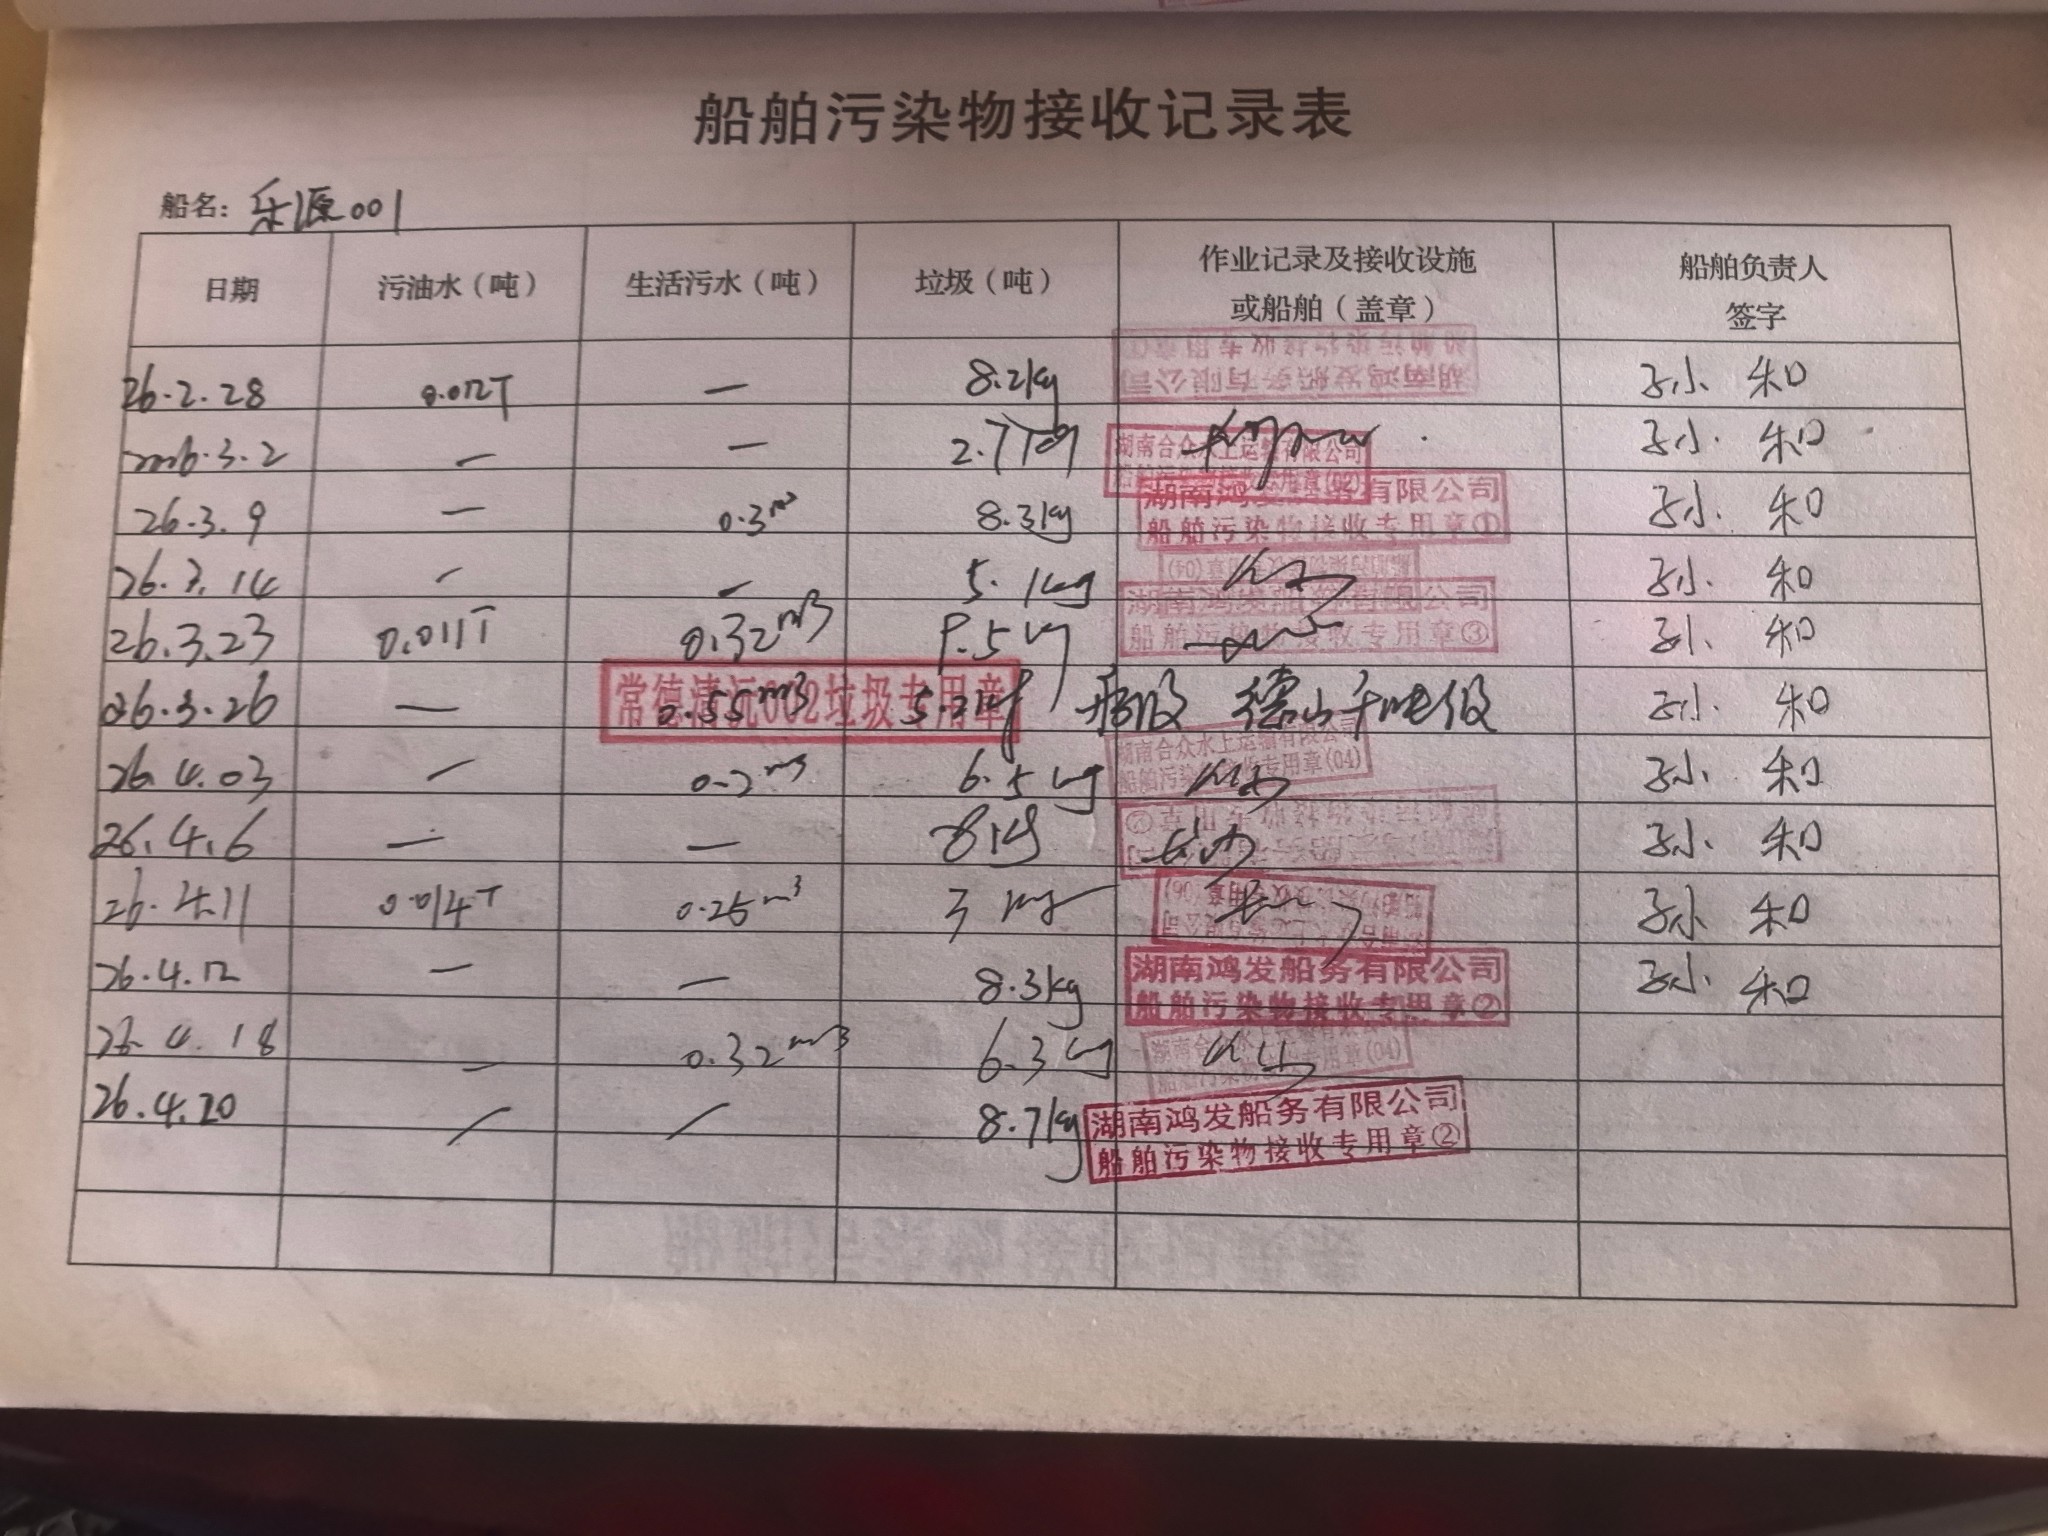 船舶污染物接收记录表
船名：乐源001
日期 污油水（吨） 生活污水（吨） 垃圾（吨） 作业记录及接收设施或船舶（盖章） 船舶负责人签字
26.2.28 0.012T — 8.2kg 孙小和
2026.3.2 — — 2.7kg 湖南合众水上运输有限公司 船舶污染物接收专用章(02) 孙小和
26.3.9 — 0.3m³ 8.3kg 湖南鸿发船务有限公司 船舶污染物接收专用章① 孙小和
26.3.14 — — 5.1kg 孙小和
26.3.23 0.011T 0.32m³ 9.5kg 湖南鸿发船务有限公司 船舶污染物接收专用章③ 孙小和
26.3.26 — 0.55m³ 5.2kg 常德清沅002垃圾专用章 德山千吨级 孙小和
26.4.03 — 0.2m³ 6.5kg 湖南合众水上运输有限公司 船舶污染物接收专用章(04) 孙小和
26.4.6 — — 8kg 长沙 孙小和
26.4.11 0.014T 0.25m³ 3kg 孙小和
26.4.12 — — 8.3kg 湖南鸿发船务有限公司 船舶污染物接收专用章② 孙小和
26.4.18 — 0.32m³ 6.3kg 湖南合众水上运输有限公司 船舶污染物接收专用章(04)
26.4.20 — — 8.7kg 湖南鸿发船务有限公司 船舶污染物接收专用章②